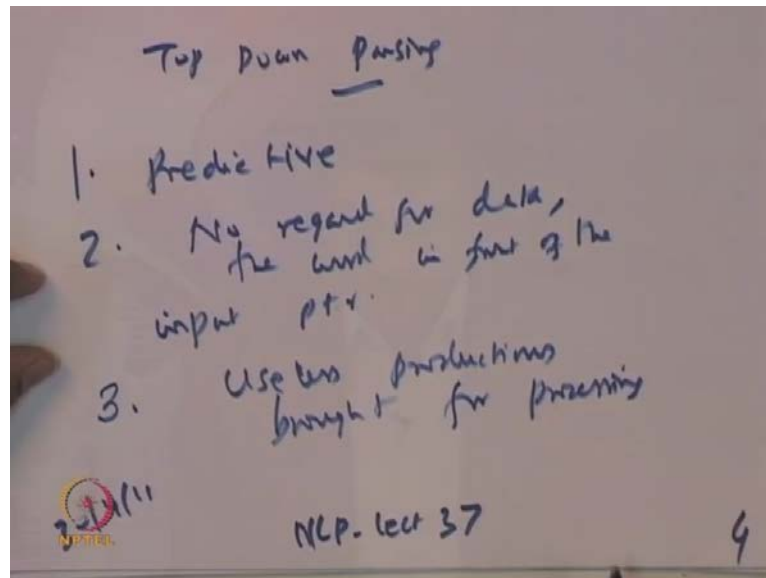 Top Down Parsing
1. Predictive
2. No regard for data,
the word in front of the
input ptr.
3. Useless productions
brought for processing
NPTEL
NLP. Lect 37
4